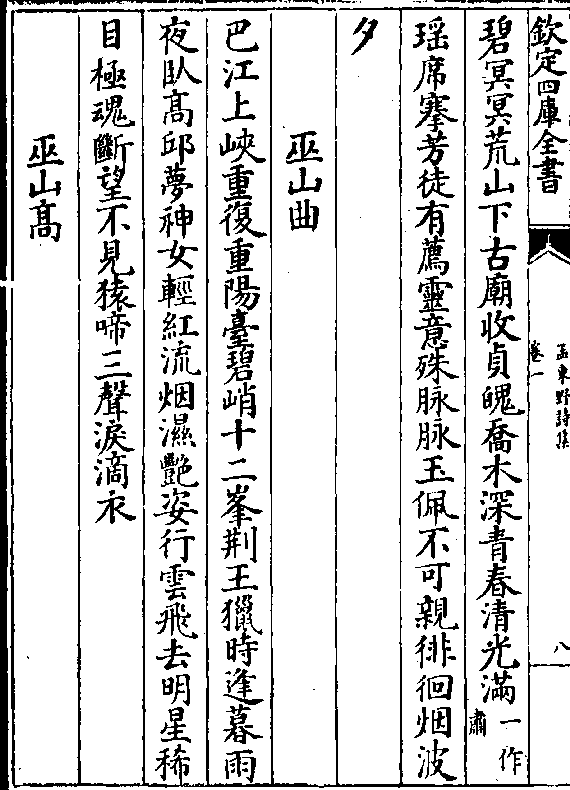 欽定四庫全書
孟東野詩集
卷一
八
碧冥冥荒山下古廟收貞魄喬木深青春清光滿一作肅
瑶席搴芳徒有薦靈意殊脉脉玉佩不可親徘徊烟波
夕
巫山曲
巴江上峽重復重陽臺碧峭十二峯荆王獵時逢暮雨
夜卧髙邱夢神女輕紅流烟濕艷姿行雲飛去明星稀
目極魂斷望不見猿啼三聲淚滴衣
巫山髙